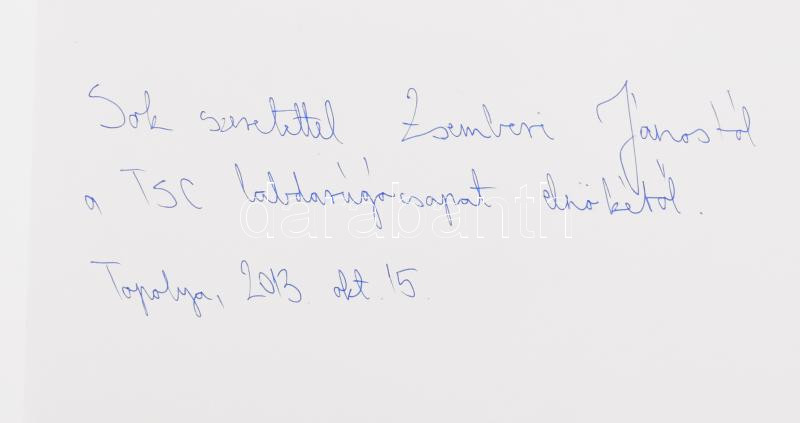 Sok szeretettel Zsemberi Jánostól
a TSC labdarúgócsapat elnökétől.
darabanth
Topolya, 2013. okt. 15.